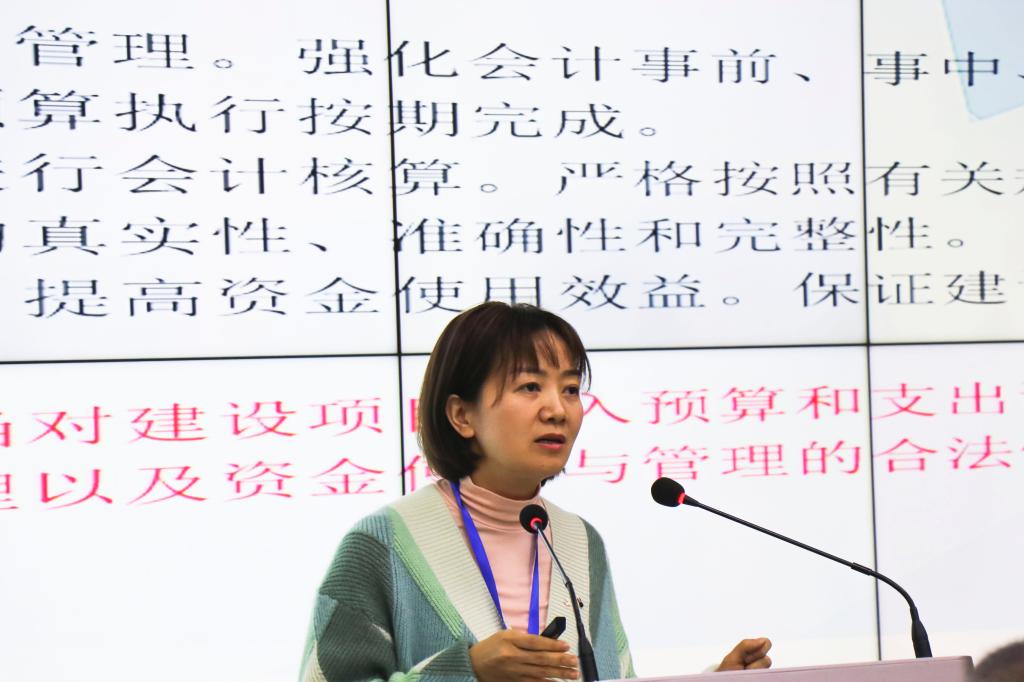 管理。强化会计事前、事中、
算执行按期完成。
行会计核算。严格按照有关
真实性、准确性和完整性。
提高资金使用效益。保证建
对建设项 入预算和支出
以及资金 与管理的合法